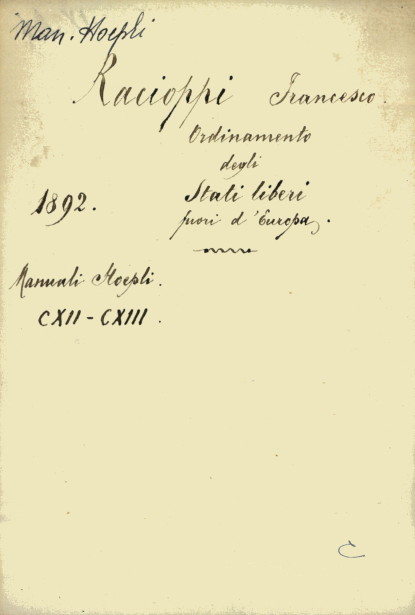 Man. Hoepli
Racioppi Francesco.
Ordinamento
degli
1892.
Stati liberi
fuori d'Europa.
Manuali Hoepli.
CXII - CXIII.